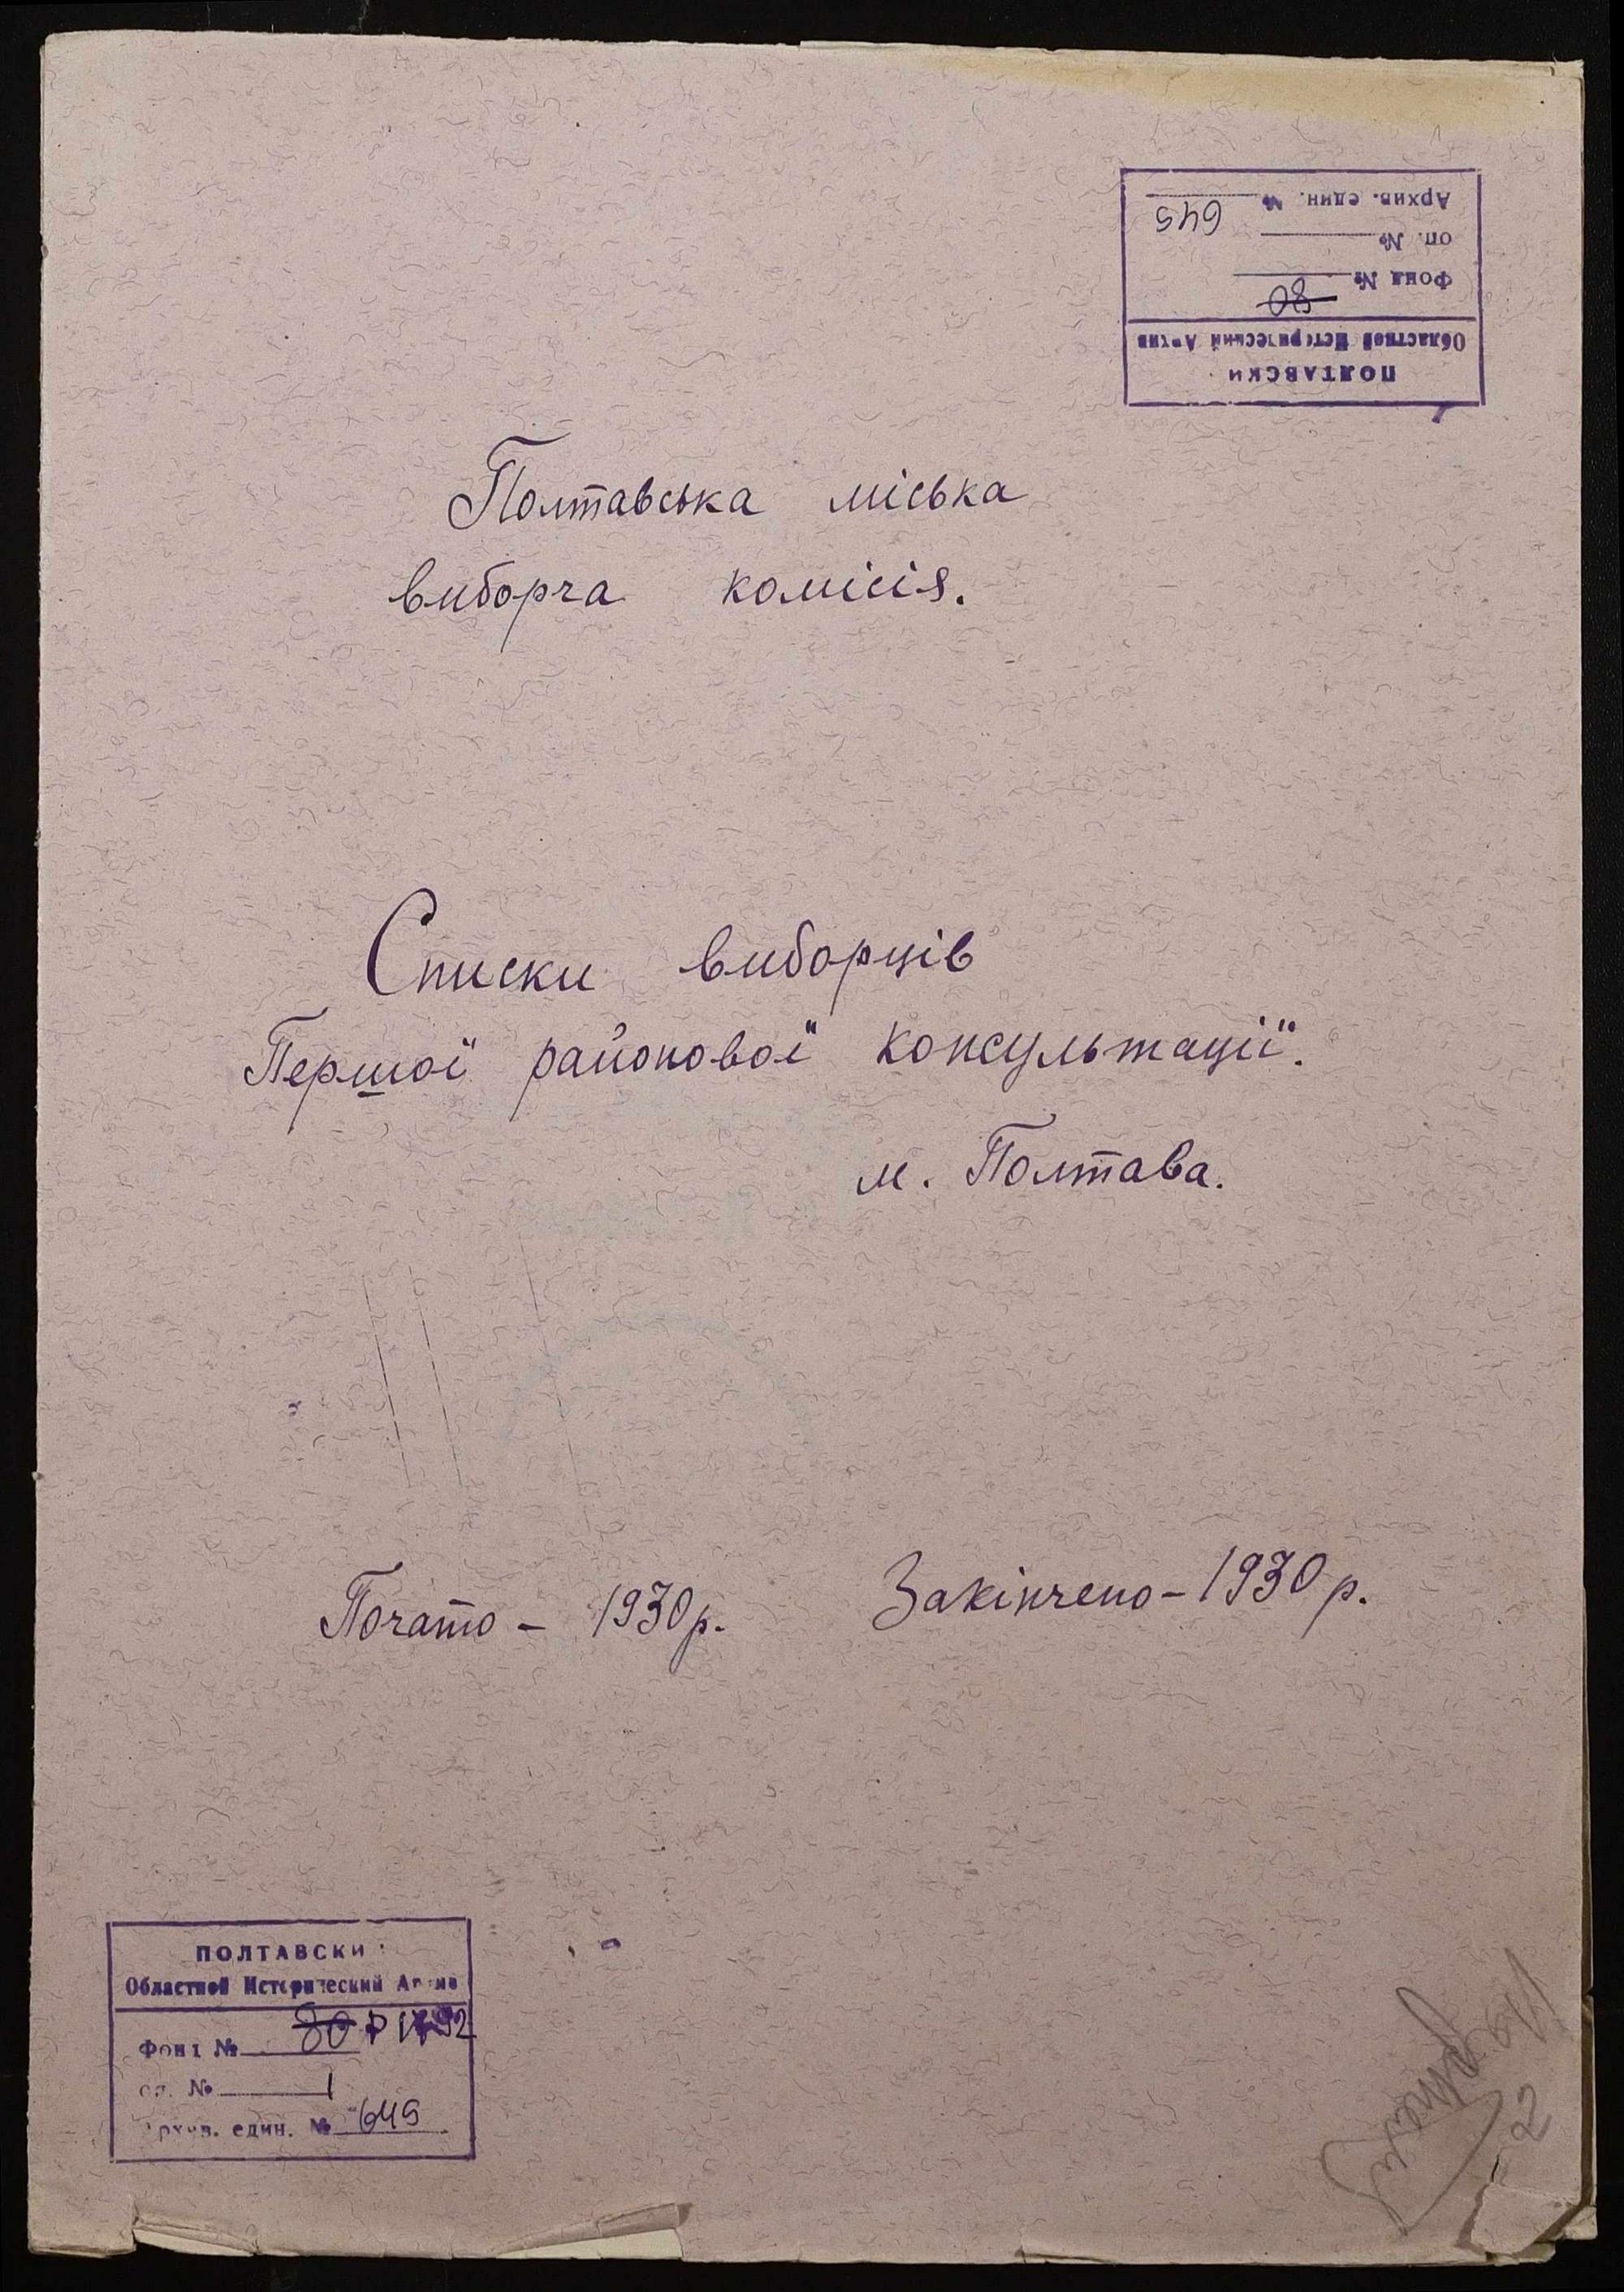 ПОЛТАВСКИ
Областной Исторический Архив
Фонд № 80
оп. №
Архив. един. № 645
Полтавська міська
виборча комісія.
Списки виборців
Першої районової консультації.
м. Полтава.
Почато - 1930 р.
Закінчено - 1930 р.
ПОЛТАВСКИ
Областной Исторический Архив
Фонд № 80 Р 1792
оп. № 1
Архив. един. № 645
2